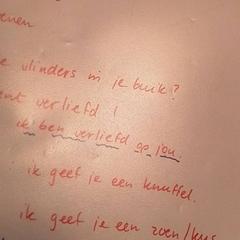 enen
e vlinders in je buik?
ent verliefd!
ik ben verliefd op jou
ik geef je een knuffel.
ik geef je een zoen/kus